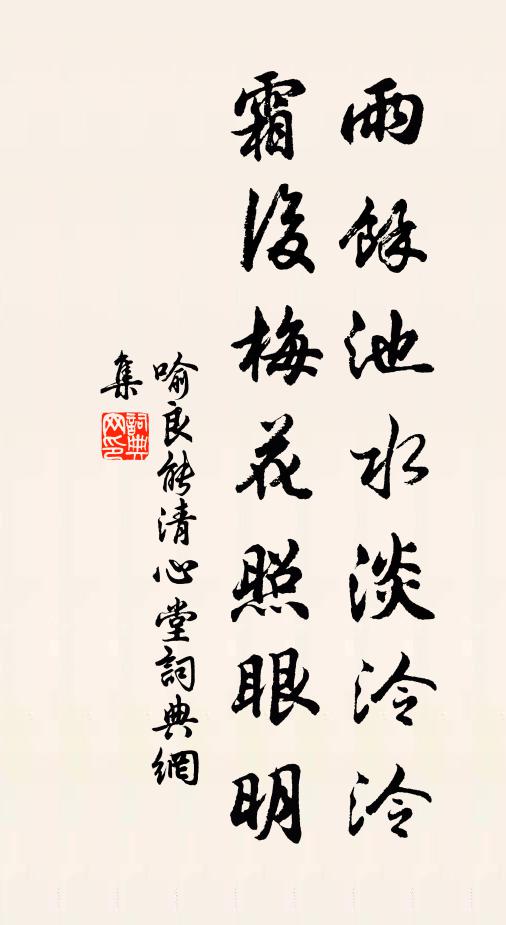 雨餘池水淡泠泠
霜後梅花照眼明
喻良能清心堂詞典網
集
詞典
网印